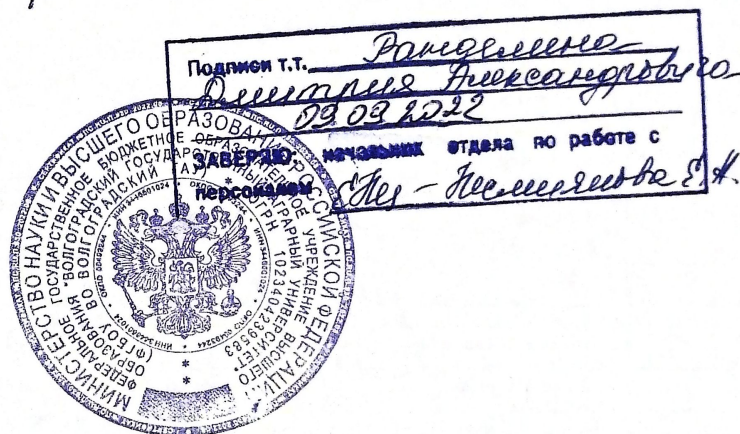 Подписи т.т. Рангелина
Дмитрия Александровича
09.09.2022
ЗАВЕРЯЮ: начальник отдела по работе с
персоналом
МИНИСТЕРСТВО НАУКИ И ВЫСШЕГО ОБРАЗОВАНИЯ РОССИЙСКОЙ ФЕДЕРАЦИИ
ФЕДЕРАЛЬНОЕ ГОСУДАРСТВЕННОЕ БЮДЖЕТНОЕ ОБРАЗОВАТЕЛЬНОЕ УЧРЕЖДЕНИЕ ВЫСШЕГО
ОБРАЗОВАНИЯ "ВОЛГОГРАДСКИЙ ГОСУДАРСТВЕННЫЙ АГРАРНЫЙ УНИВЕРСИТЕТ"
(ФГБОУ ВО ВОЛГОГРАДСКИЙ ГАУ) ОГРН 1023404239583